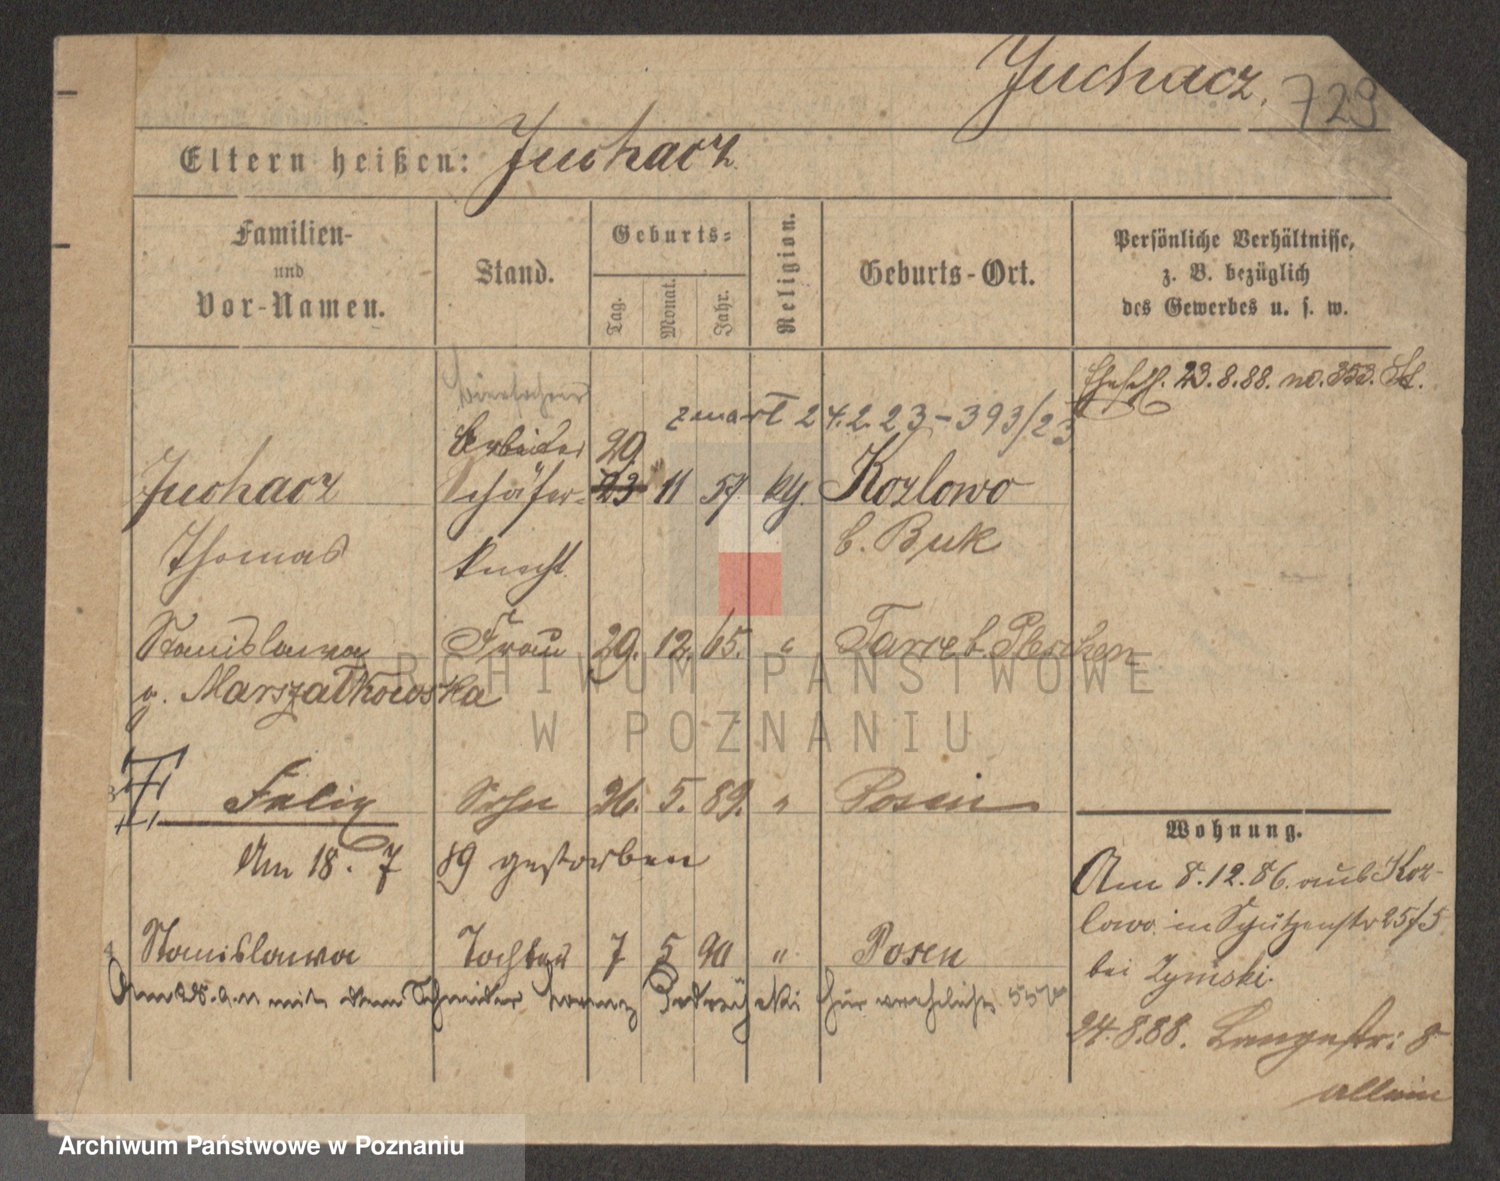 Juchacz.
729
Eltern heißen: Juchacz
Familien-
und
Vor-Namen.
Stand.
Geburts-
Tag.
Monat.
Jahr.
Religion.
Geburts-Ort.
Persönliche Verhältnisse,
z. B. bezüglich
des Gewerbes u. s. w.
23.8.88. no. 353.
zmarł 24.2.23-393/23
Arbeiter 29.
Juchacz Schäfer- 23 11 57 kth. Kozlowo
Thomas knecht. b. Buk
Stanislawa Frau 29. 12. 65. " Tarce b. Pleschen
g. Marszałkowska
Felix Sohn 26. 5. 89. " Posen
Am 18. 7 89 gestorben
4 Stanislawa Tochter 7 5 90 " Posen
mit dem Schmider
Wohnung.
Am 8.12.86. aus Koz-
lowo in Schützenstr 25/5
bei Zynski.
24.8.88. Langestr: 8
allein
ARCHIWUM PAŃSTWOWE
W POZNANIU
Archiwum Państwowe w Poznaniu